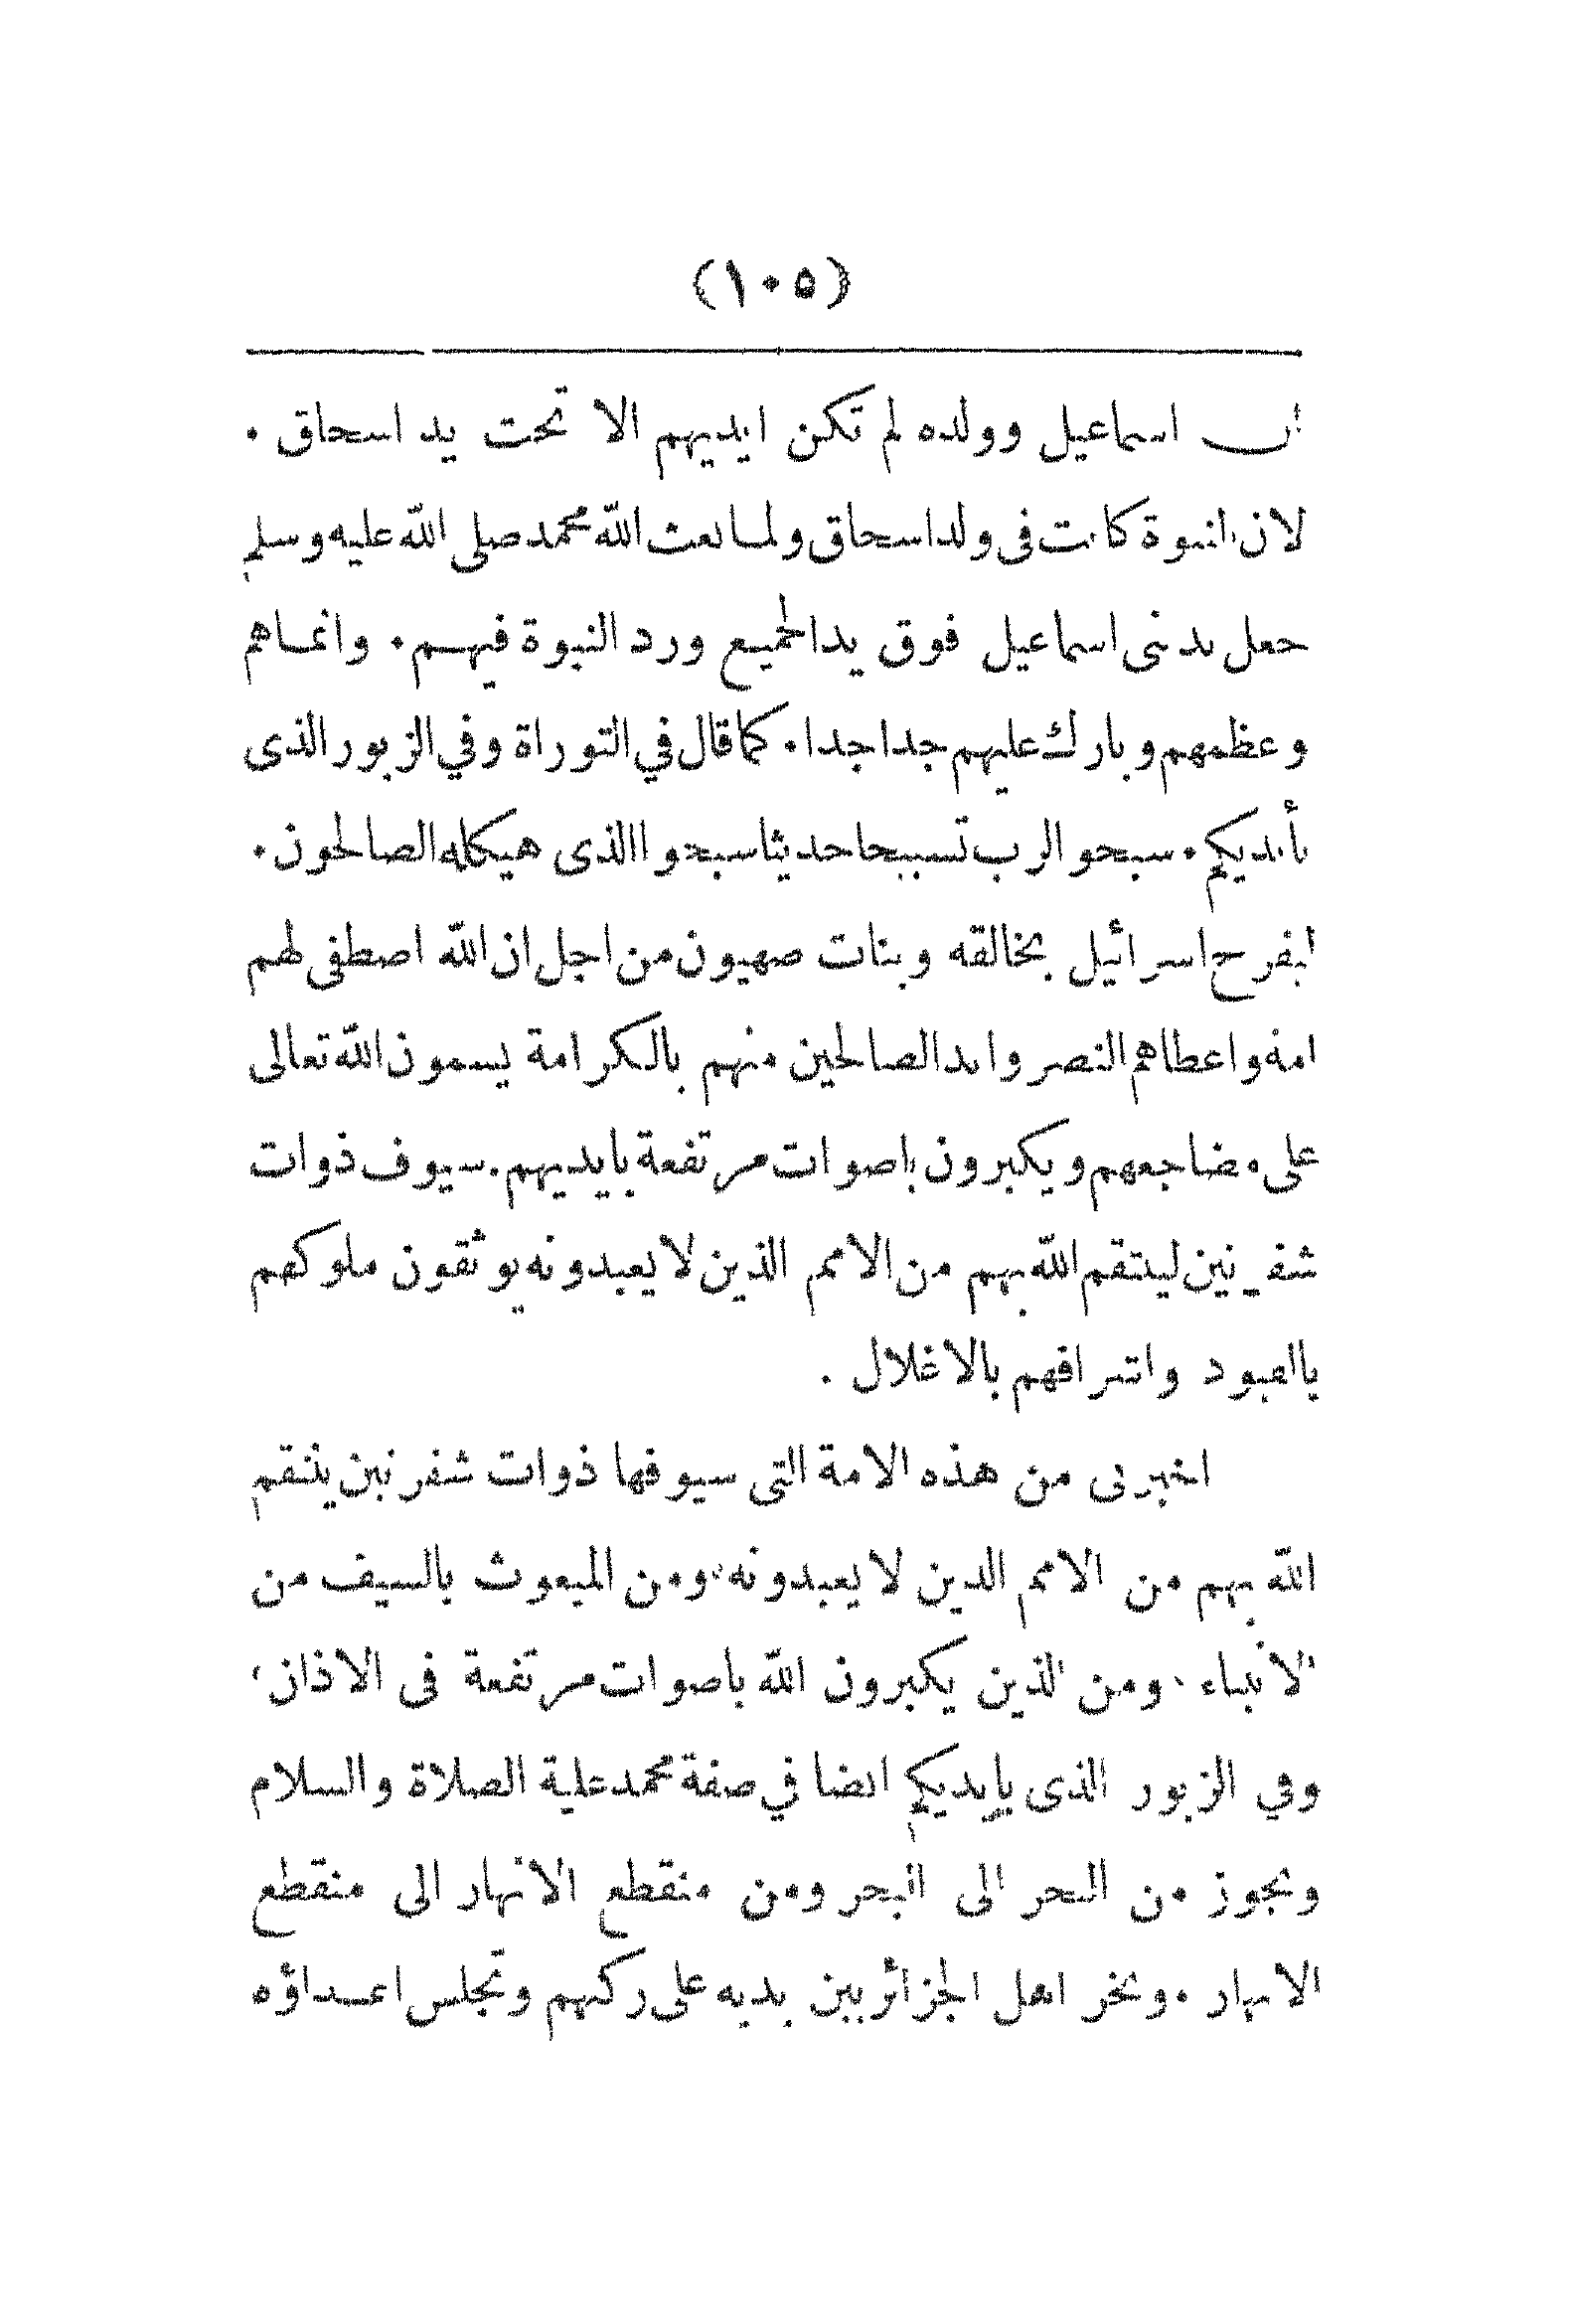 (١٠٥)
ان اسماعيل وولده لم تكن ايديهم الا تحت يد اسحاق .
لان النبوة كانت فى ولد اسحاق ولما بعث الله محمد صلى الله عليه وسلم
جعل يد بنى اسماعيل فوق يد الجميع ورد النبوة فيهم . وانماهم
وعظمهم وبارك عليهم جدا جدا . كما قال في التوراة وفي الزبور الذى
بأيديكم . سبحو الرب تسبيحا حديثا سبحوا الذى هيكله الصالحون .
ليفرح اسرائيل بخالقه وبنات صهيون من اجل ان الله اصطفى لهم
امة واعطاهم النصر وايد الصالحين منهم بالكرامة يسمون الله تعالى
على مضاجعهم ويكبرون باصوات مرتفعة بايديهم . سيوف ذوات
شفرتين لينتقم الله بهم من الامم الذين لا يعبدونه يوثقون ملوكهم
بالقيود واشرافهم بالاغلال .
اخبرنى من هذه الامة التى سيوفها ذوات شفرتين ينتقم
الله بهم من الامم الذين لا يعبدونه، ومن المبعوث بالسيف من
الانبياء، ومن الذين يكبرون الله باصوات مرتفعة فى الاذان،
وفي الزبور الذى بايديكم ايضا في صفة محمد علية الصلاة والسلام
ويجوز من البحر الى البحر ومن منقطع الانهار الى منقطع
الانهار . ويخر اهل الجزائر بين يديه على ركبهم وتجلس اعداؤه